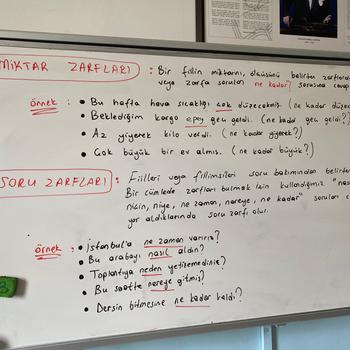 MİKTAR ZARFLARI : Bir fiilin miktarını, ölçüsünü belirten zarflardır
veya zarfa sorulan ne kadar? sorusuna cevap
örnek : • Bu hafta hava sıcaklığı çok düşecekmiş. (ne kadar düşece
• Beklediğim kargo epey geç geldi. (ne kadar geç geldi?)
• Az yiyerek kilo verdi. (ne kadar yiyerek?)
• Çok büyük bir ev almış. (ne kadar büyük?)
SORU ZARFLARI : Fiilleri veya fiilimsileri soru bakımından belirten
Bir cümlede zarfları bulmak için kullandığımız "nasıl
niçin, niye, ne zaman, nereye, ne kadar" soruları c
yer aldıklarında soru zarfı olur.
örnek : • İstanbul'a ne zaman varırız?
• Bu arabayı nasıl aldın?
• Toplantıya neden yetişemediniz?
• Bu saatte nereye gitmiş?
• Dersin bitmesine ne kadar kaldı?